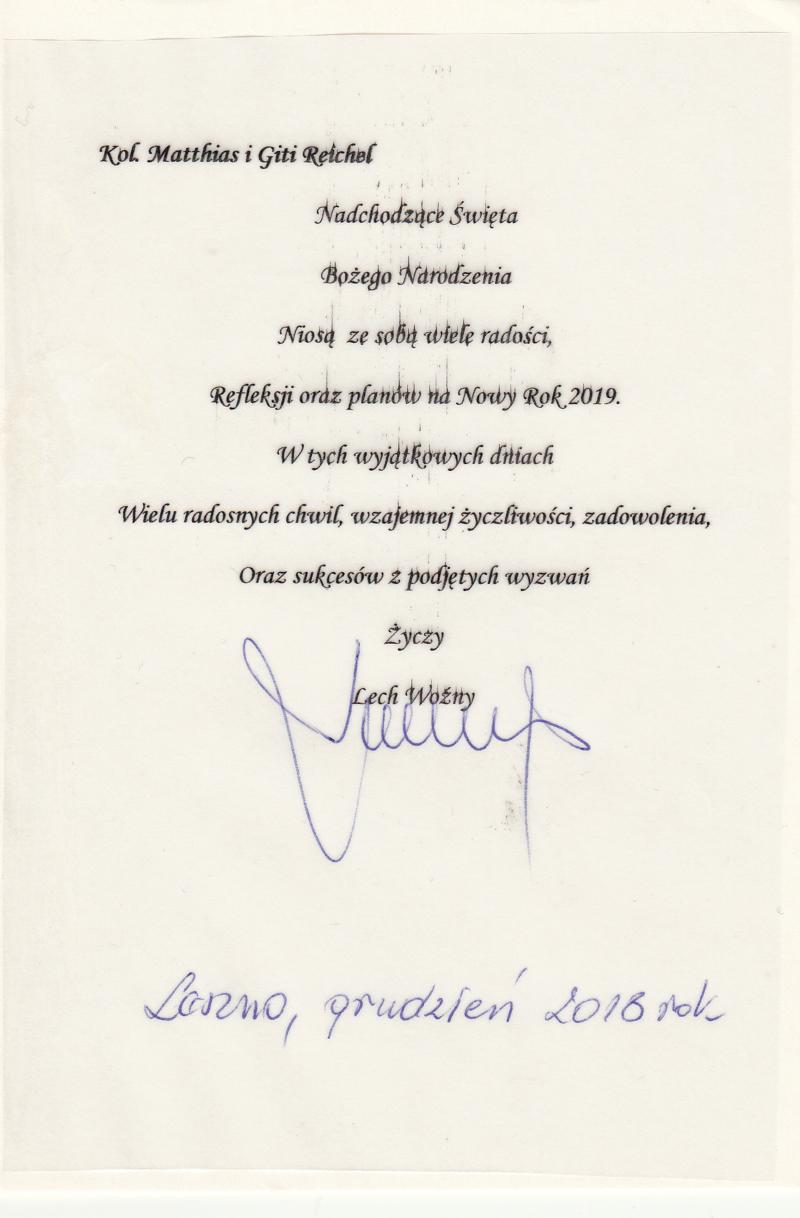 Kol. Matthias i Giti Reichel
Nadchodzące Święta
Bożego Narodzenia
Niosą ze sobą wiele radości,
Refleksji oraz planów na Nowy Rok 2019.
W tych wyjątkowych dniach
Wielu radosnych chwil, wzajemnej życzliwości, zadowolenia,
Oraz sukcesów z podjętych wyzwań
Życzy
Lech Woźny
grudzień 2018 rok